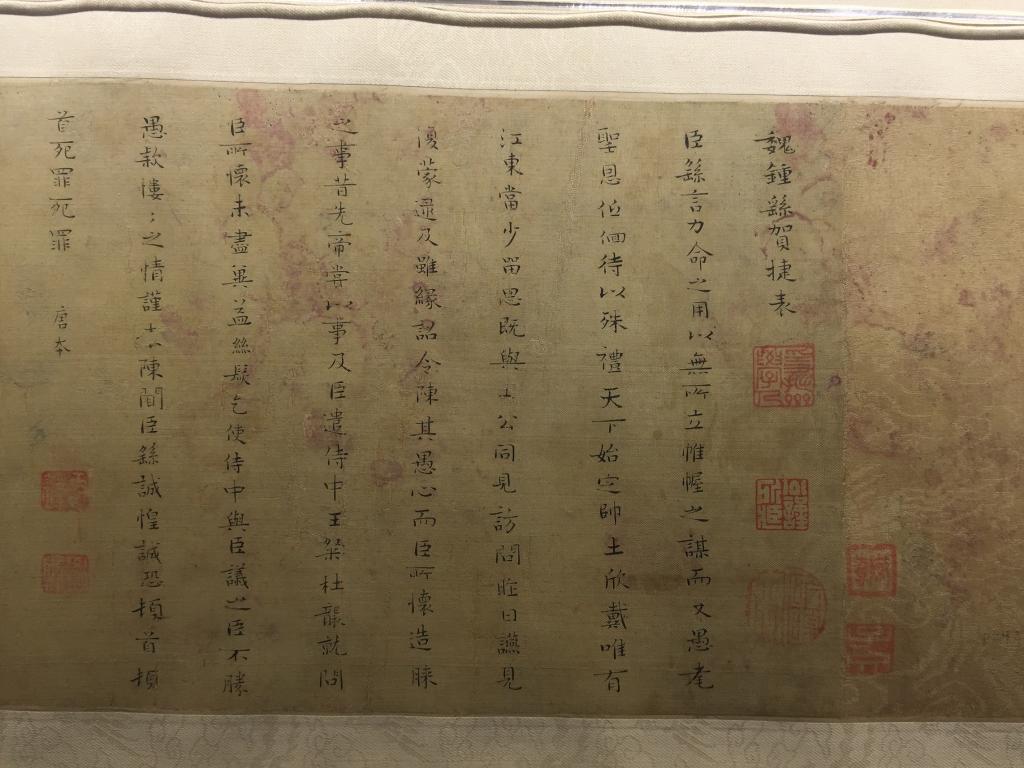 魏鍾繇賀捷表
臣繇言力命之用以無所立帷幄之謀而又愚耄
聖恩低佪待以殊禮天下始定帥土欣戴唯有
江東當少留思既與上公同見訪問昨日疏見
復蒙逮及雖緣詔令陳其愚心而臣所懷造膝
之事昔先帝嘗以事及臣遣侍中王粲杜襲就問
臣所懷未盡冀益絲髮乞使侍中與臣議之臣不勝
愚款慺〻之情謹上陳聞臣繇誠惶誠恐頓首頓
首死罪死罪 唐本